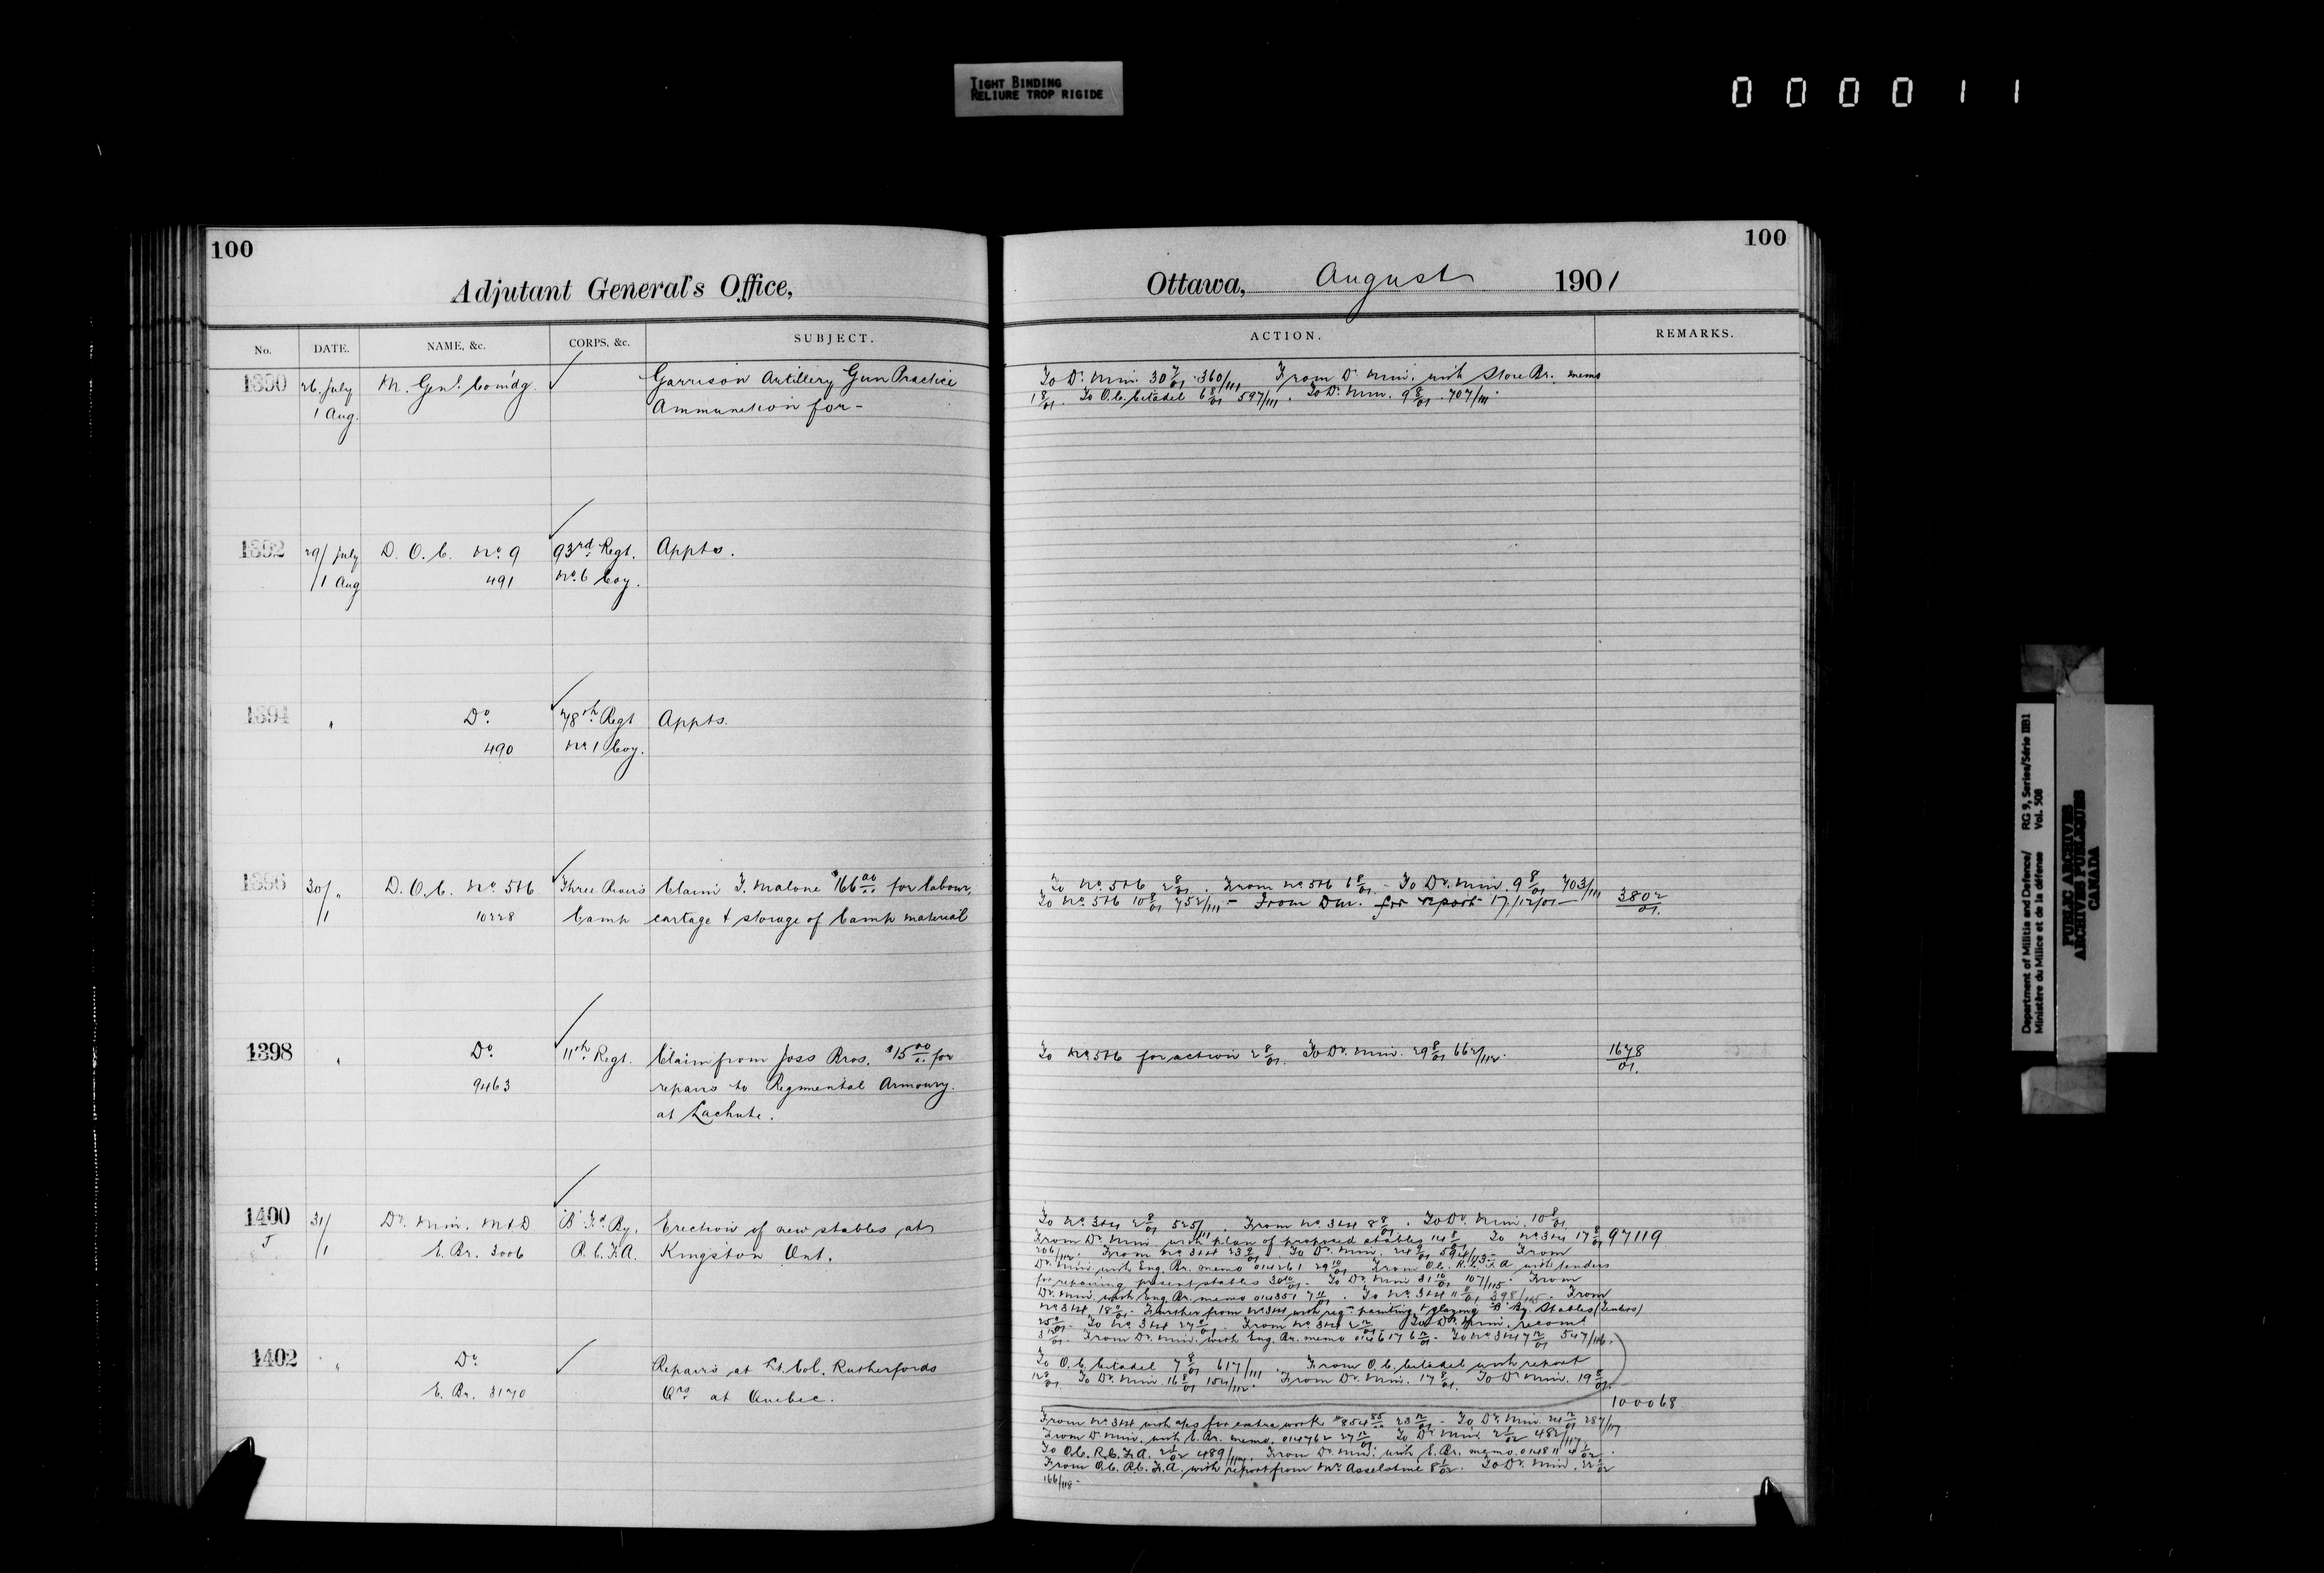 TIGHT BINDING
RELIURE TROP RIGIDE
000011
100
Adjutant General's Office,
No. DATE. NAME, &c. CORPS, &c. SUBJECT.
1390 26. July M. Genl. Comdg. Garrison Artillery Gun Practice
1 Aug. Ammunition for-
1392 29/ July D. O. C. No. 9 93rd Regt. Appts.
/1 Aug 491 No. 6 Coy.
1394 " Do. 78th Regt Appts.
490 No. 1 Coy.
1396 30/ " D. O. C. No. 5&6 Three Rivers Claim F. Malone $166 00/.. for labour,
/1 10228 Camp cartage & storage of Camp material
1398 " Do. 11th Regt. Claim from Joss Bros. $15 00/.. for
9463 repairs to Regimental Armoury.
at Lachute.
1400 31/ Dy. Min. M&D 'B' Fd. By. Erection of new stables at
/1 E. Br. 3006 R.C.F.A. Kingston Ont.
1402 " Do. Repairs at Lt. Col. Rutherfords
E. Br. 3170 Qrs at Quebec.
100
Ottawa, August 1901
ACTION. REMARKS.
To Dy. Min. 30 7/01 360/111 From Dy. Min. with Store Br. memo
1 8/01. To O.C. Citadel 6 8/01 597/111. To Dy. Min. 9 8/01. 707/111.
To No. 5&6 2 8/01. From No. 5&6 6 8/01 - To Dy. Min. 9 8/01 703/111
To No. 5&6 10 8/01 752/111 - From Dm. for report 17/12/01 - 3802/01.
To No. 5&6 for action 2 8/01. To Dy. Min. 29 8/01 662/112. 1678/01.
To No. 3&4 2 8/01 525/111. From No. 3&4 8 8/01. To Dy. Min. 10 8/01.
From Dy. Min with plan of proposed stables 14 8/01 To No. 3&4 17 8/01 97119
206/112. From No. 3&4 23 9/01. To Dy. Min. 24 9/01 594/113 - From
Dy. Min. with Eng. Br. memo 014261 29 10/01 From O.C. R.C.F.A with tenders
for repairing present stables 30 10/01. To Dy. Min 31 10/01 107/115. From
Dy. Min. with Eng. Br. memo 014351 7 11/01. To No. 3&4 11 11/01 398/115. From
No. 3&4 18 11/01. Further from No. 3&4 with reg. painting & glazing 'B' By. Stables (Tenders)
25 11/01 - To No. 3&4 27 11/01. From No. 3&4 2 12/01 To Dy. Min. recomd
3 12/01. From Dy. Min. with Eng. Br. memo 014617 6 12/01 - To No. 3&4 7 12/01 547/116.
To O.C. Citadel 7 8/01 617/111. From O.C. Citadel with report
12 8/01. To Dy. Min. 16 8/01 154/112. From Dy. Min. 17 8/01. To Dy Min. 19 8/01.
100068
From No. 3&4 with aps for extra work $854 85/00 23 12/01 - To Dy. Min. 24 12/01 287/117
From Dy. Min. with E. Br. memo. 014762 27 12/01 To Dy. Min. 2 1/02 482/117
To O.C. R.C.F.A. 2 1/02 489/117. From Dy. Min. with E. Br. memo. 014811 4 1/02.
From O.C. R.C.F.A. with report from Mr. Asselstine 8 1/02. To Dy. Min. 22 1/02
166/118 -
Department of Militia and Defence/ RG 9, Series/Série IIB1
Ministère du Milice et de la défense Vol. 508
PUBLIC ARCHIVES
ARCHIVES PUBLIQUES
CANADA